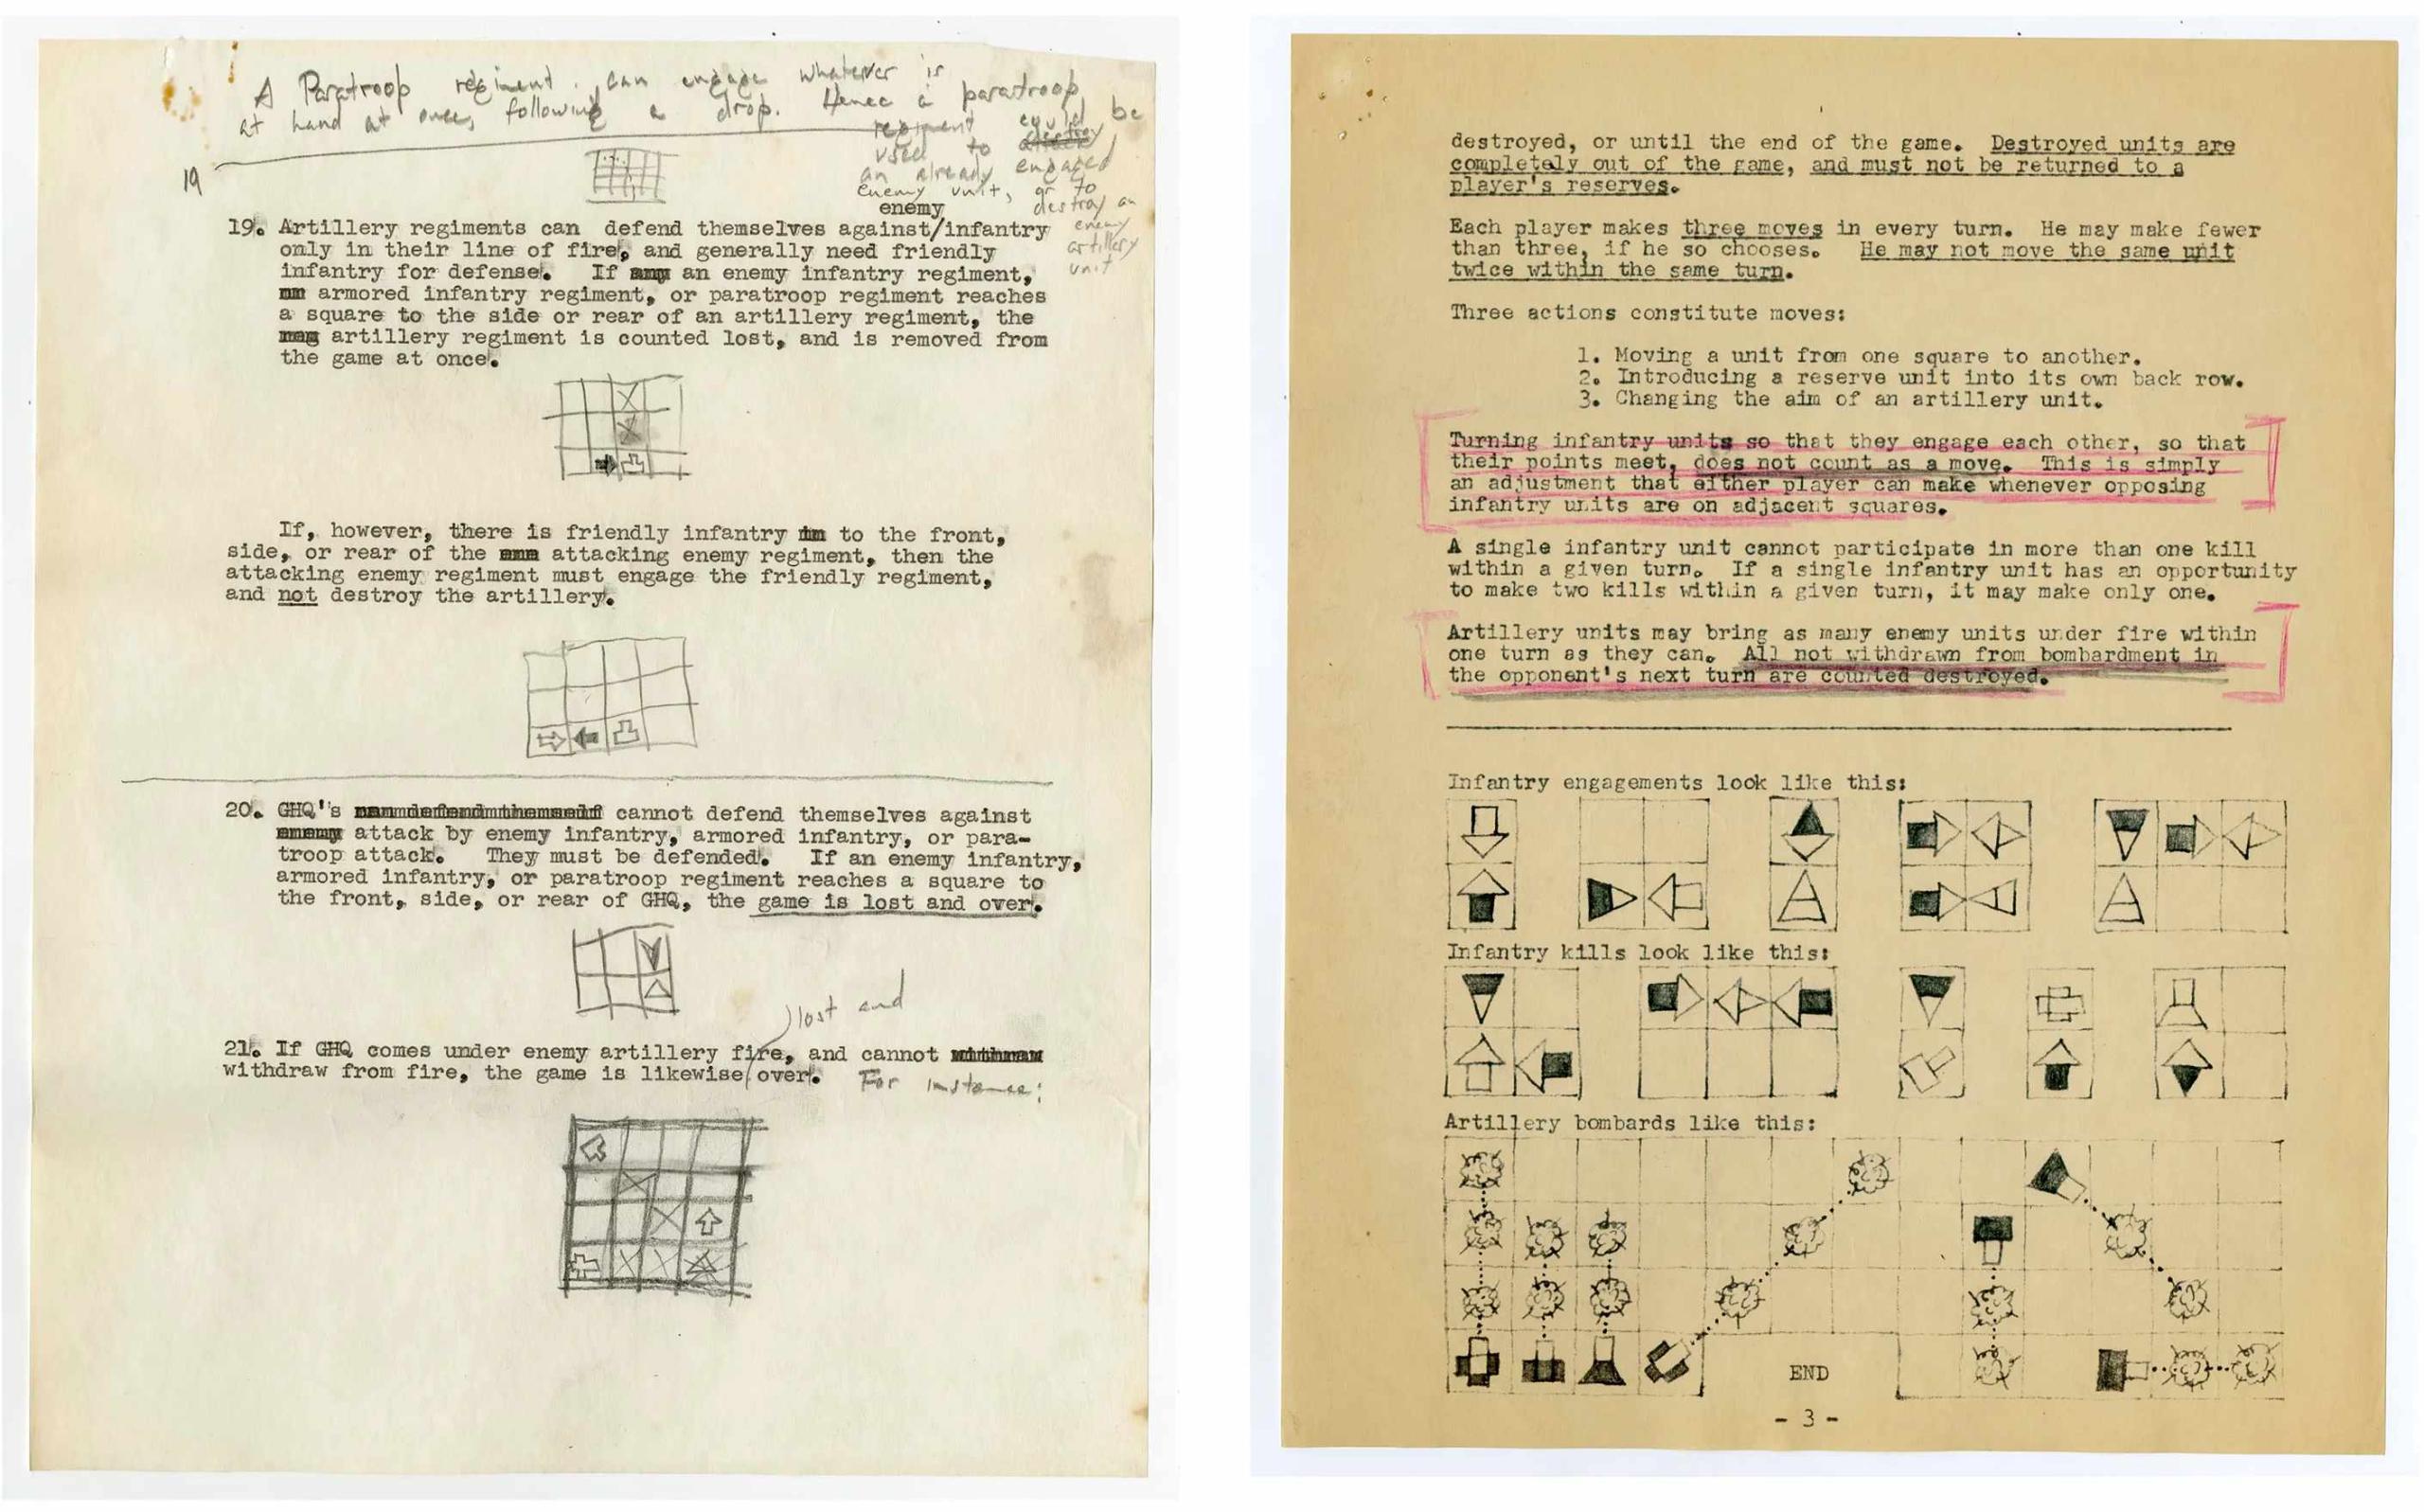 A Paratroop regiment can engage whatever is
at hand at once, following a drop. Hence a paratroop
regiment could be
used to destroy
an already engaged
enemy unit, or to
destroy an
enemy
artillery
unit
19
enemy
19. Artillery regiments can defend themselves against/infantry
only in their line of fire, and generally need friendly
infantry for defense. If an enemy infantry regiment,
armored infantry regiment, or paratroop regiment reaches
a square to the side or rear of an artillery regiment, the
artillery regiment is counted lost, and is removed from
the game at once.
If, however, there is friendly infantry to the front,
side, or rear of the attacking enemy regiment, then the
attacking enemy regiment must engage the friendly regiment,
and not destroy the artillery.
20. GHQ's cannot defend themselves against
attack by enemy infantry, armored infantry, or para-
troop attack. They must be defended. If an enemy infantry,
armored infantry, or paratroop regiment reaches a square to
the front, side, or rear of GHQ, the game is lost and over.
lost and
21. If GHQ comes under enemy artillery fire, and cannot
withdraw from fire, the game is likewise over. For instance:
destroyed, or until the end of the game. Destroyed units are
completely out of the game, and must not be returned to a
player's reserves.
Each player makes three moves in every turn. He may make fewer
than three, if he so chooses. He may not move the same unit
twice within the same turn.
Three actions constitute moves:
1. Moving a unit from one square to another.
2. Introducing a reserve unit into its own back row.
3. Changing the aim of an artillery unit.
Turning infantry units so that they engage each other, so that
their points meet, does not count as a move. This is simply
an adjustment that either player can make whenever opposing
infantry units are on adjacent squares.
A single infantry unit cannot participate in more than one kill
within a given turn. If a single infantry unit has an opportunity
to make two kills within a given turn, it may make only one.
Artillery units may bring as many enemy units under fire within
one turn as they can. All not withdrawn from bombardment in
the opponent's next turn are counted destroyed.
Infantry engagements look like this:
Infantry kills look like this:
Artillery bombards like this:
END
- 3 -